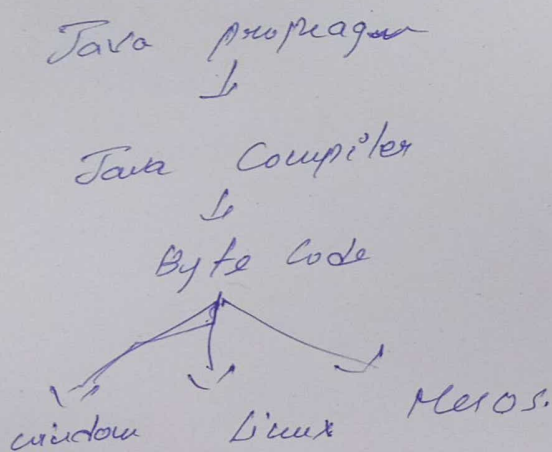 Java program
Java Compiler
Byte Code
window Linux MacOS.